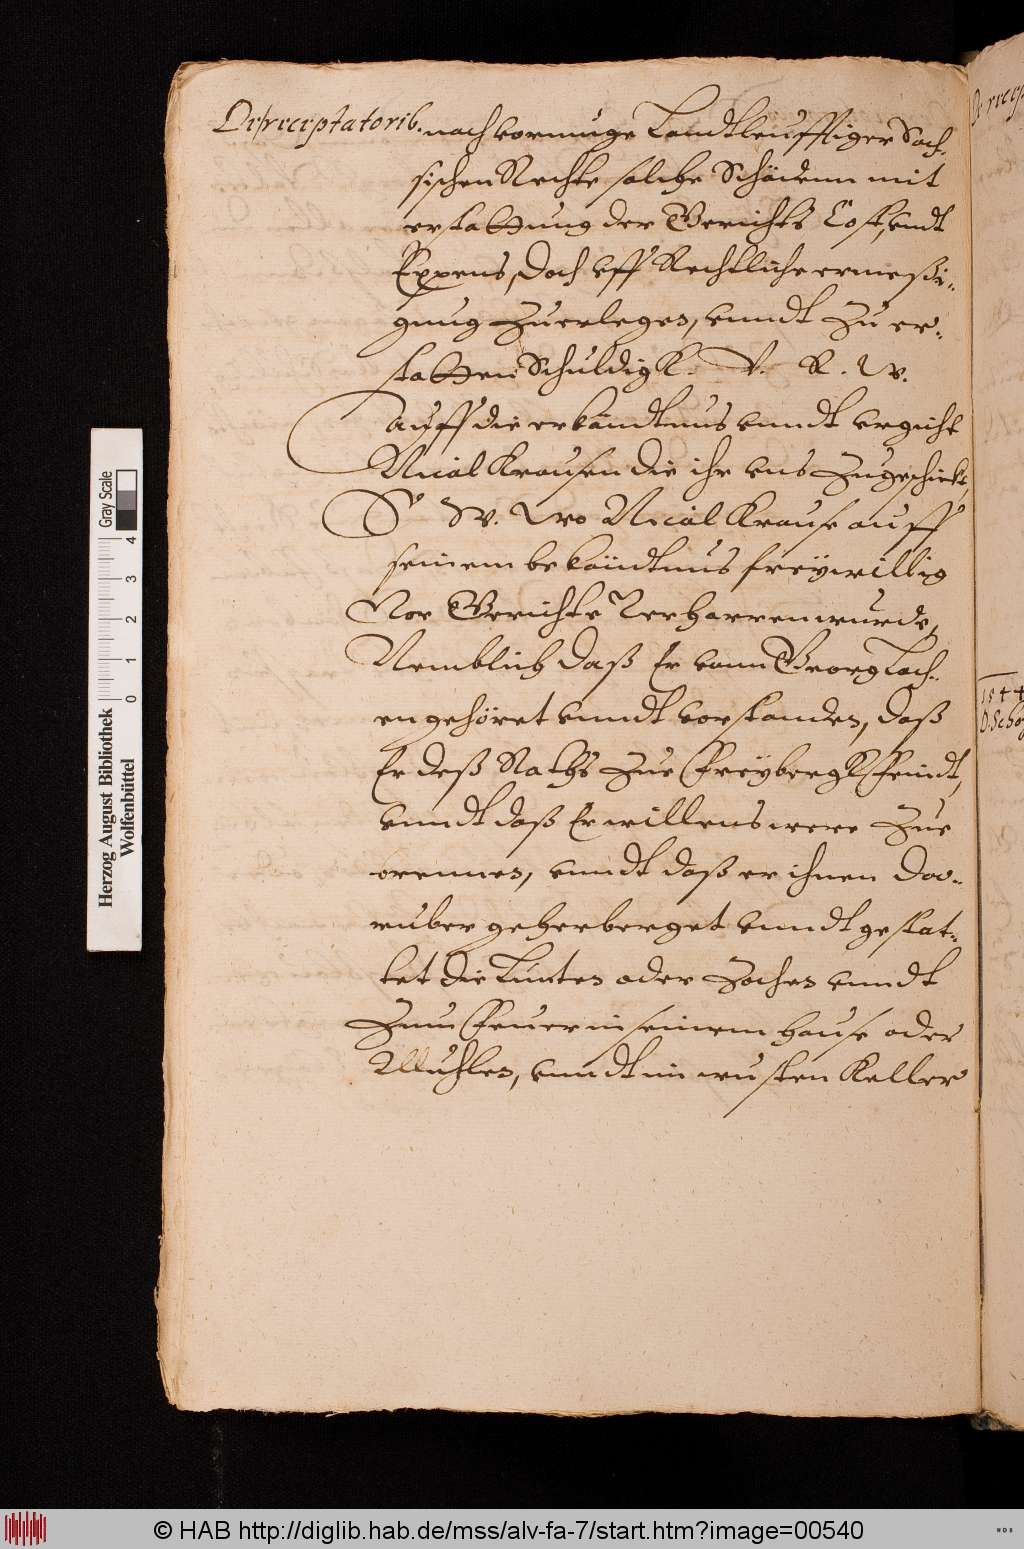 De receptatorib. nach vormuge Landtleufftiger Sach-
sischen Rechte solche Schädenn mit
erstattung der Gerichts Cost, vndt
Expens, doch vff Rechtliche ermeßi-
gung zuerlegen, vnndt zu er-
statten Schuldigk. V. R. W.
Auff die erkändtnus vnndt vrgicht
Nicol Krausen die ihr vns zugeschickt,
S W. Wo Nicol Krause auff
seinem bekändtnus freÿwillig
Vor Gerichte verharren wurde,
Nemblich daß Er vonn Georg Lach-
en gehöret vnndt vorstanden, daß
Er deß Raths zue Freÿbergk Feindt,
vnndt daß Er willens were zue
brennen, vnndt daß er ihnen dar-
uber geherberget vnndt gestat-
tet die Lunten oder Zochen vnndt
zum Feuer in seinem hause oder
Muhlen, vnndt im wusten Keller
1544
D. Scho
Gray Scale
0 1 2 3 4
Herzog August Bibliothek
Wolfenbüttel
© HAB http://diglib.hab.de/mss/alv-fa-7/start.htm?image=00540